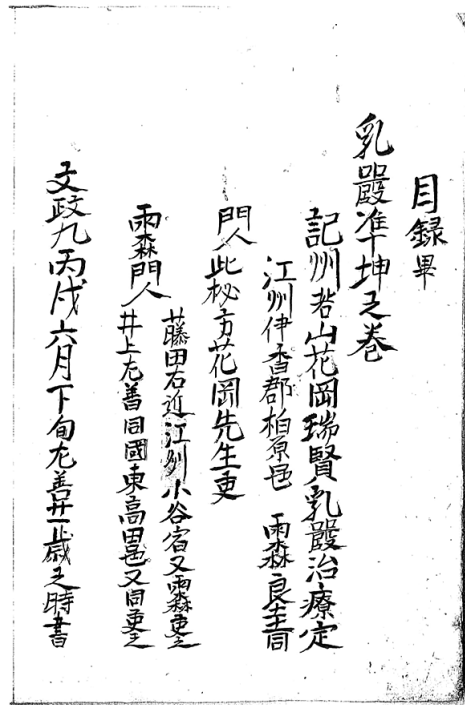 目録畢
乳嵓準坤之巻
記州若山花岡瑞賢乳嵓治療定
江州伊香郡柏原邑 雨森良圭同
門人此秘方花岡先生吏
藤田右近江州小谷宿又雨森吏之
雨森門人
井上左善同國東高田邑又同吏之
文政九丙戌六月下旬左善廿一歳之時書